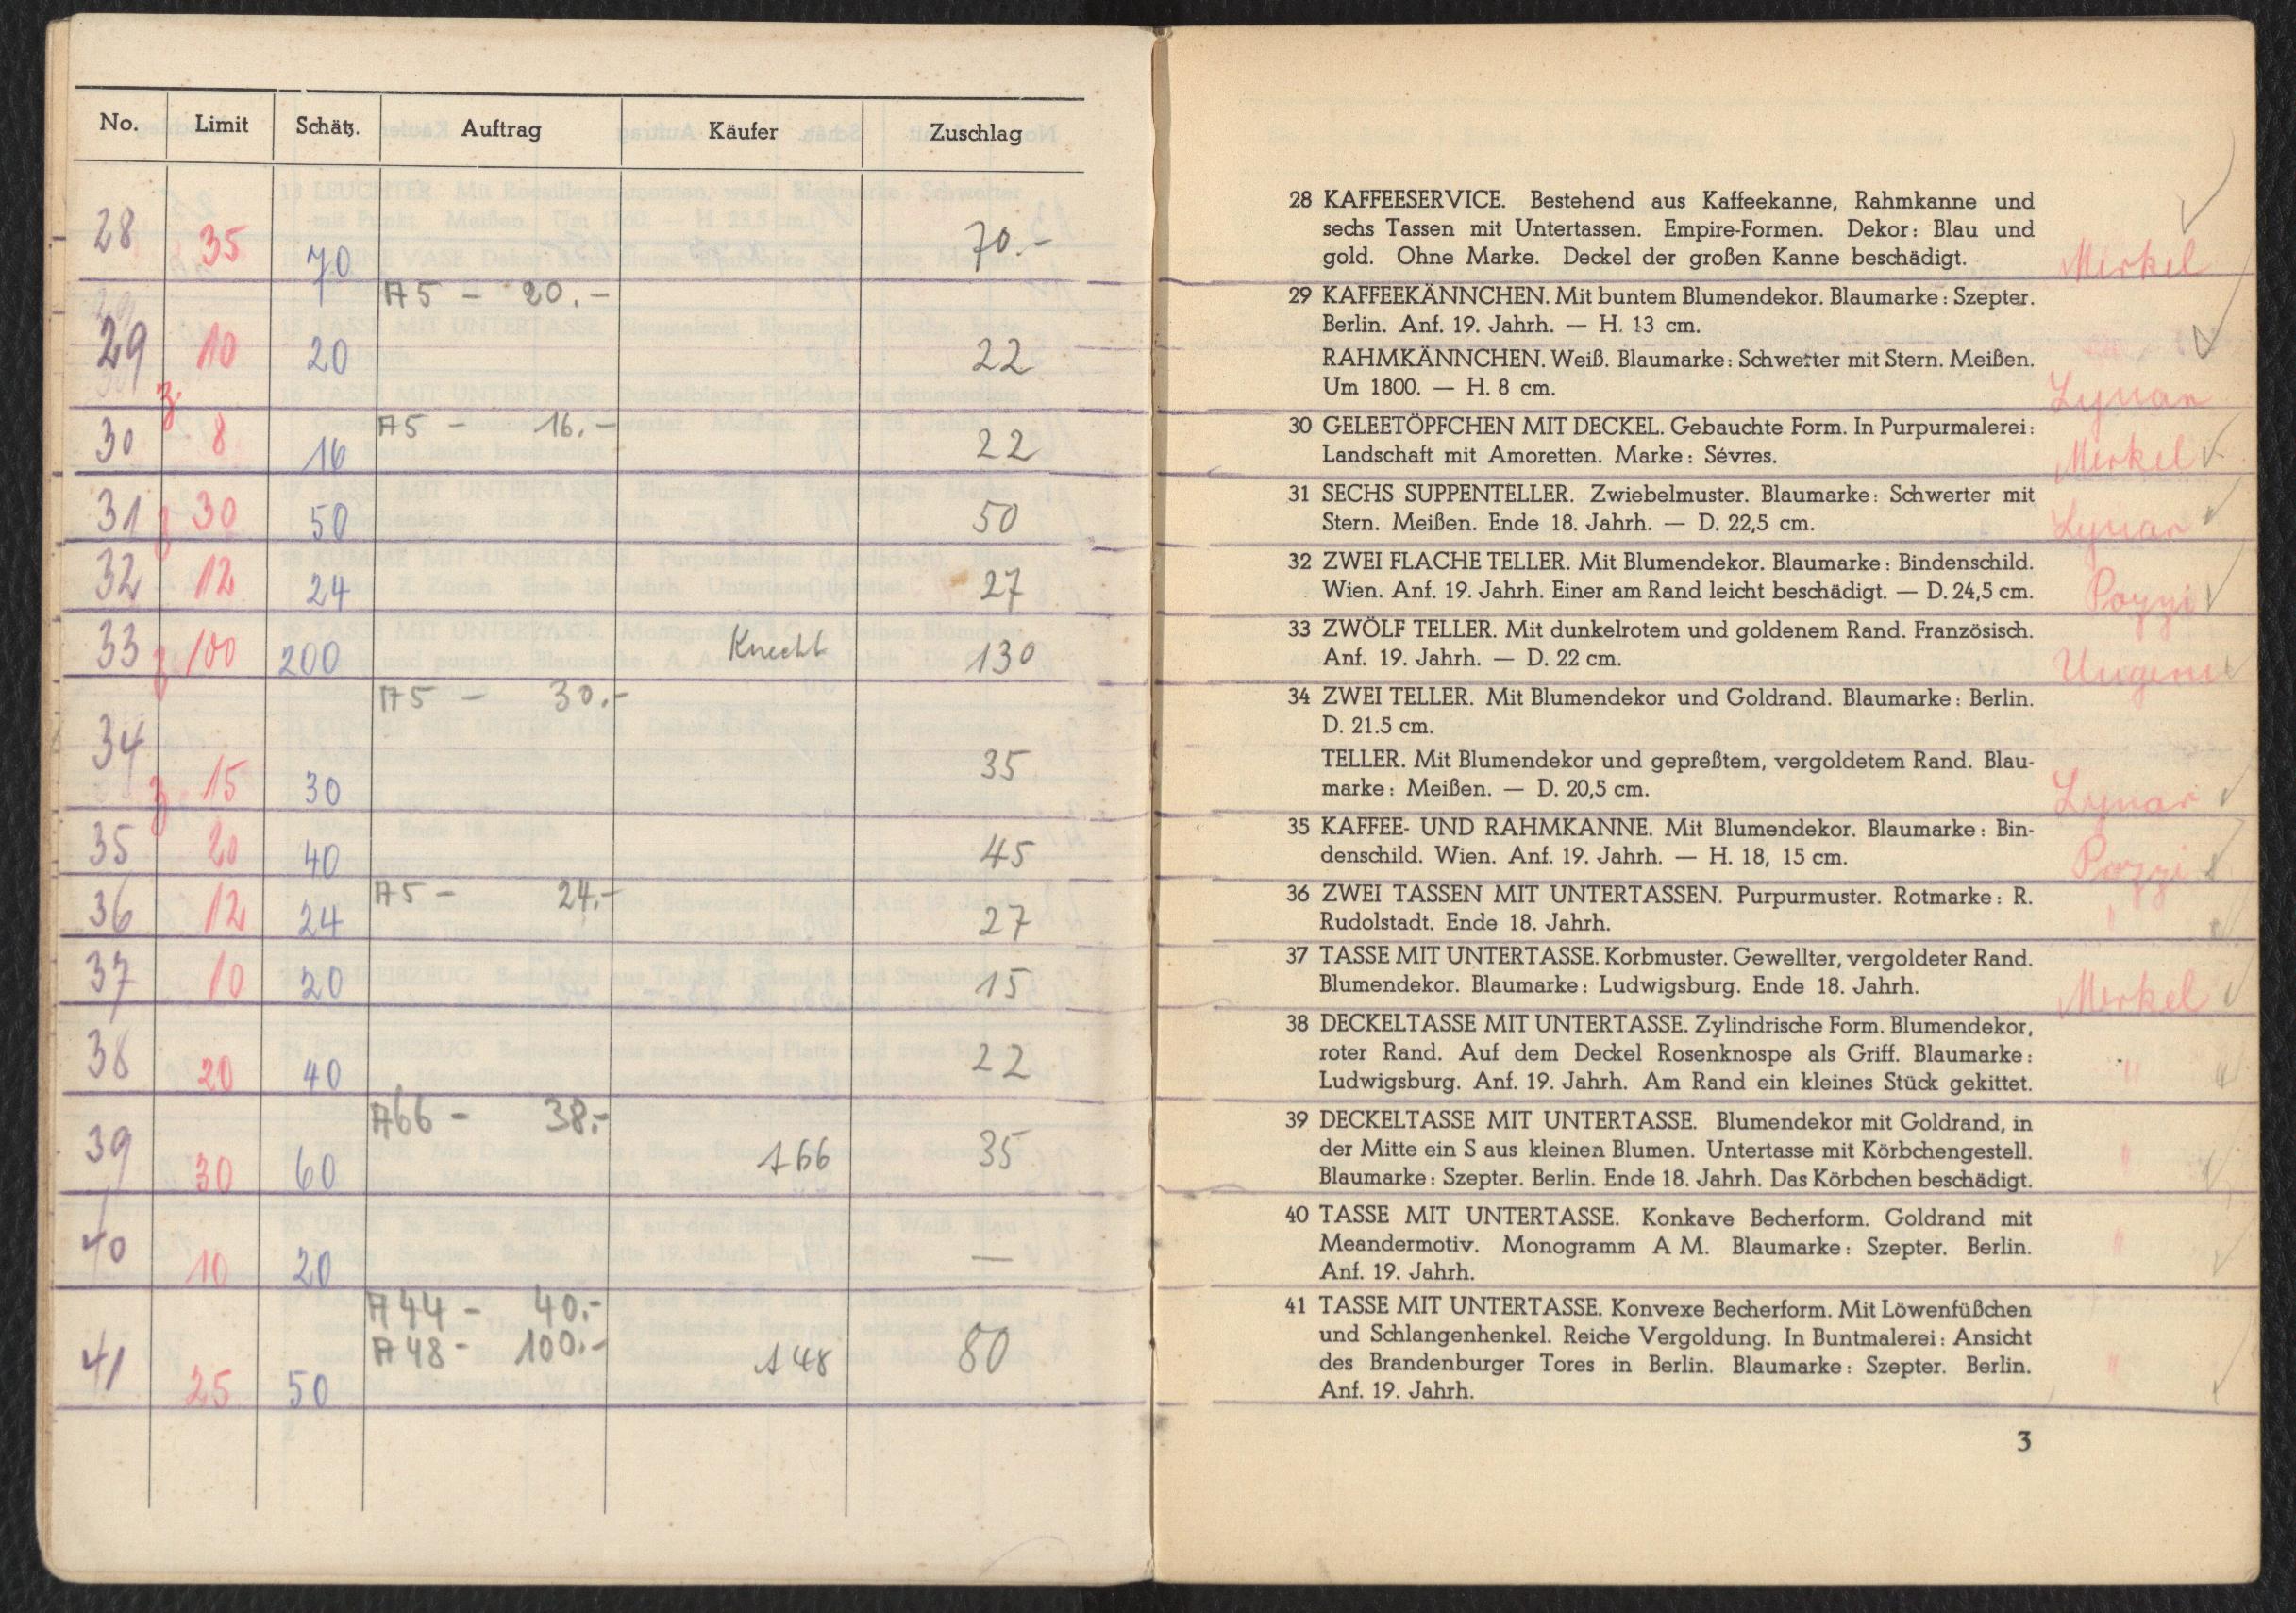 No. Limit Schätz. Auftrag Käufer Zuschlag
28 35 70 70.-
A5 - 20.-
29 10 20 22
A5 - 16.-
30 8 16 22
31 30 50 50
32 12 24 27
33 100 200 Knecht 130
A5 - 30.-
34 15 30 35
35 20 40 45
A5 - 24.-
36 12 24 27
37 10 20 15
38 20 40 22
A66 - 38.-
39 30 60 A66 35
40 10 20 —
A44 - 40.-
A48 - 100.-
41 25 50 A48 80
28 KAFFEESERVICE. Bestehend aus Kaffeekanne, Rahmkanne und
sechs Tassen mit Untertassen. Empire-Formen. Dekor: Blau und
gold. Ohne Marke. Deckel der großen Kanne beschädigt. Merkel
29 KAFFEEKÄNNCHEN. Mit buntem Blumendekor. Blaumarke: Szepter.
Berlin. Anf. 19. Jahrh. — H. 13 cm.
RAHMKÄNNCHEN. Weiß. Blaumarke: Schwerter mit Stern. Meißen.
Um 1800. — H. 8 cm. Lynar
30 GELEETÖPFCHEN MIT DECKEL. Gebauchte Form. In Purpurmalerei:
Landschaft mit Amoretten. Marke: Sévres. Merkel
31 SECHS SUPPENTELLER. Zwiebelmuster. Blaumarke: Schwerter mit
Stern. Meißen. Ende 18. Jahrh. — D. 22,5 cm. Lynar
32 ZWEI FLACHE TELLER. Mit Blumendekor. Blaumarke: Bindenschild.
Wien. Anf. 19. Jahrh. Einer am Rand leicht beschädigt. — D. 24,5 cm. Pozzi
33 ZWÖLF TELLER. Mit dunkelrotem und goldenem Rand. Französisch.
Anf. 19. Jahrh. — D. 22 cm.
34 ZWEI TELLER. Mit Blumendekor und Goldrand. Blaumarke: Berlin.
D. 21.5 cm.
TELLER. Mit Blumendekor und gepreßtem, vergoldetem Rand. Blau-
marke: Meißen. — D. 20,5 cm. Lynar
35 KAFFEE- UND RAHMKANNE. Mit Blumendekor. Blaumarke: Bin-
denschild. Wien. Anf. 19. Jahrh. — H. 18, 15 cm. Pozzi
36 ZWEI TASSEN MIT UNTERTASSEN. Purpurmuster. Rotmarke: R.
Rudolstadt. Ende 18. Jahrh. "
37 TASSE MIT UNTERTASSE. Korbmuster. Gewellter, vergoldeter Rand.
Blumendekor. Blaumarke: Ludwigsburg. Ende 18. Jahrh. Merkel
38 DECKELTASSE MIT UNTERTASSE. Zylindrische Form. Blumendekor,
roter Rand. Auf dem Deckel Rosenknospe als Griff. Blaumarke:
Ludwigsburg. Anf. 19. Jahrh. Am Rand ein kleines Stück gekittet. "
39 DECKELTASSE MIT UNTERTASSE. Blumendekor mit Goldrand, in
der Mitte ein S aus kleinen Blumen. Untertasse mit Körbchengestell. "
Blaumarke: Szepter. Berlin. Ende 18. Jahrh. Das Körbchen beschädigt.
40 TASSE MIT UNTERTASSE. Konkave Becherform. Goldrand mit
Meandermotiv. Monogramm A M. Blaumarke: Szepter. Berlin. "
Anf. 19. Jahrh.
41 TASSE MIT UNTERTASSE. Konvexe Becherform. Mit Löwenfüßchen
und Schlangenhenkel. Reiche Vergoldung. In Buntmalerei: Ansicht
des Brandenburger Tores in Berlin. Blaumarke: Szepter. Berlin. "
Anf. 19. Jahrh.
3